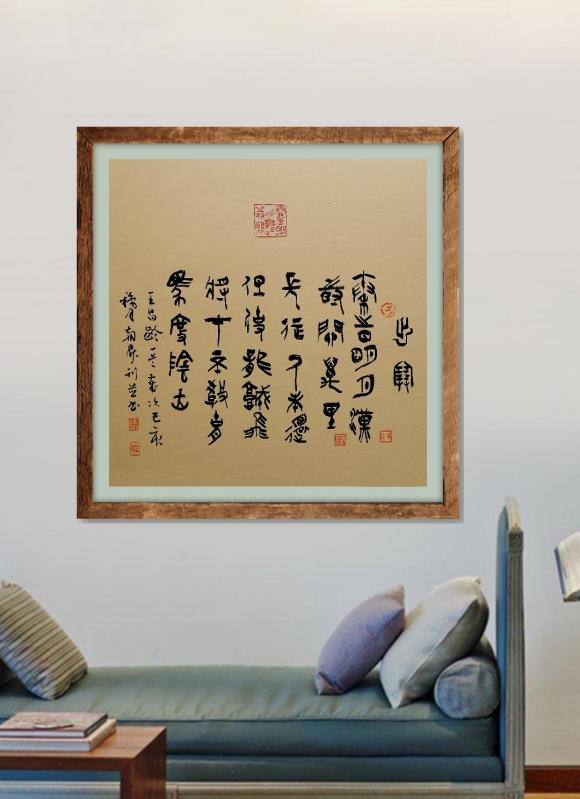 出塞
秦旹明月漢
時關萬里
長征人未還
但使龍城飛
將在不教胡
馬度陰山
王昌齡 歲次己亥